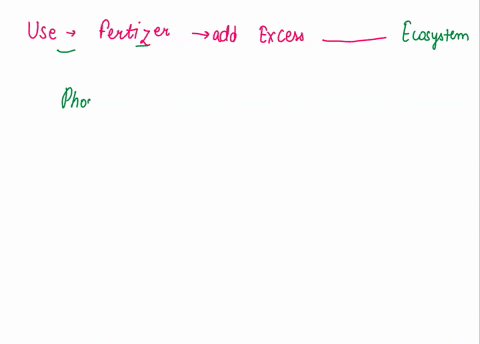 Use → Fertizer → add Excess ______ Ecosystem
Pho